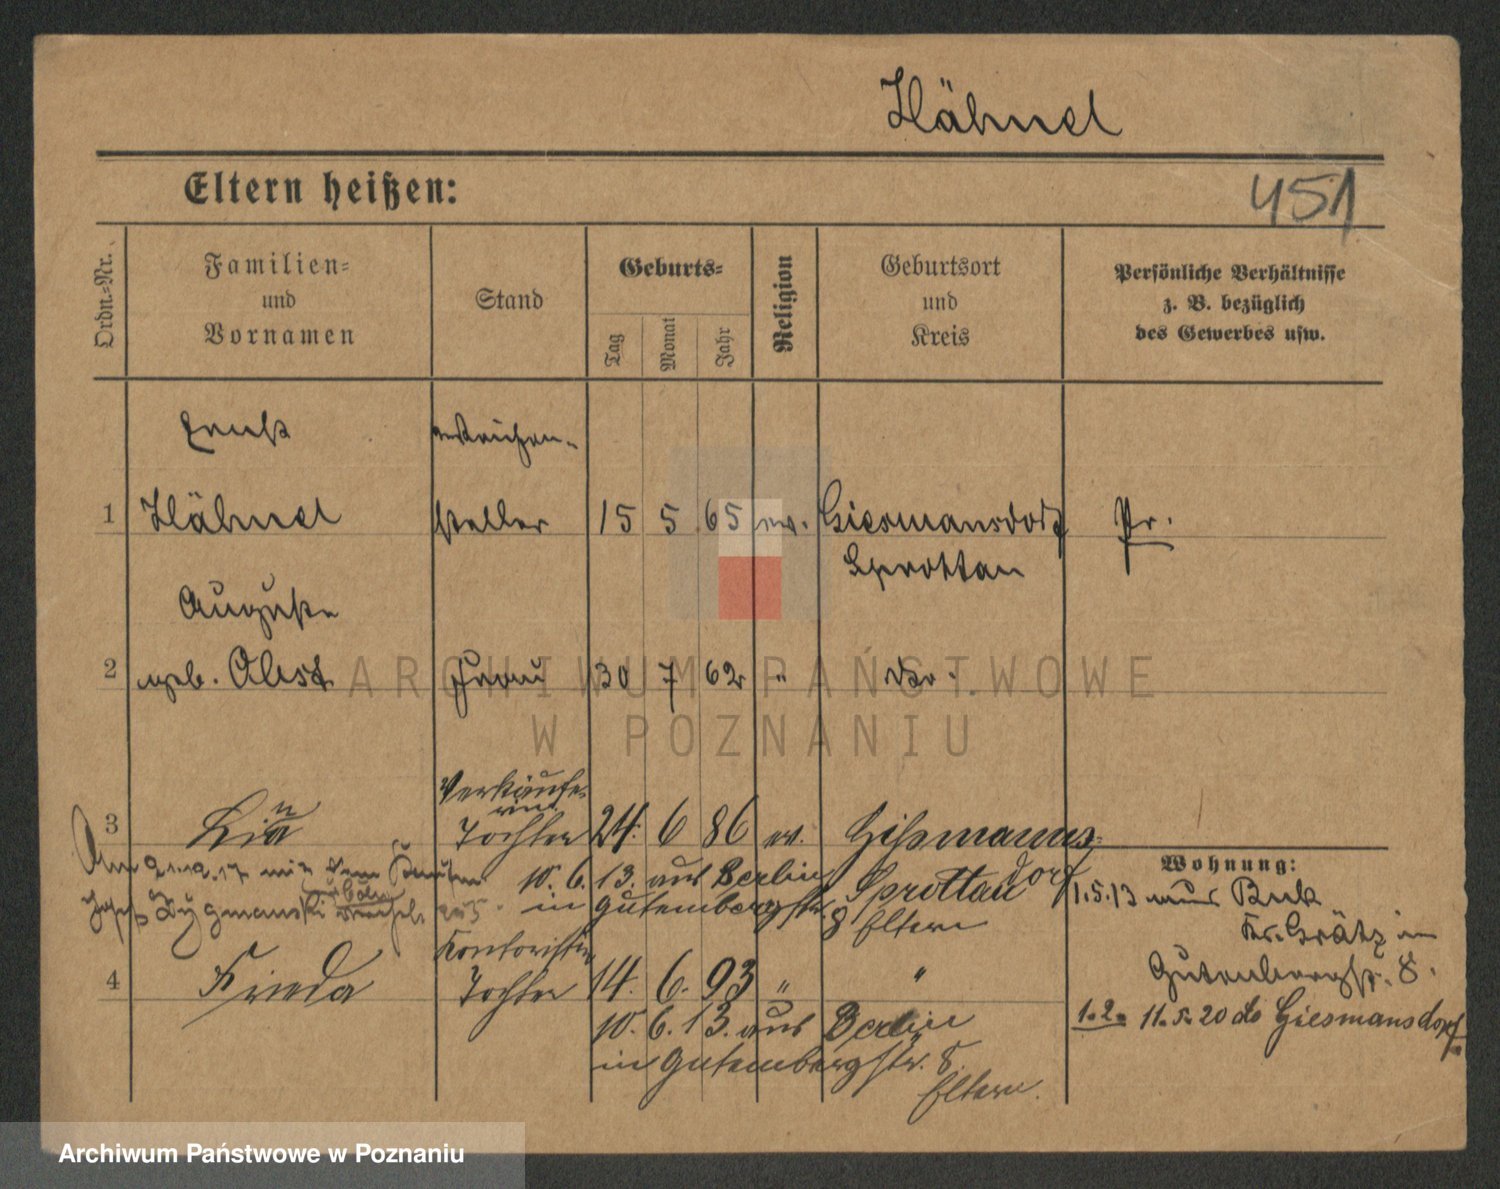 Hähnel
Eltern heißen:
451
Ordn.=Nr.
Familien=
und
Vornamen
Stand
Geburts=
Tag
Monat
Jahr
Religion
Geburtsort
und
Kreis
Persönliche Verhältnisse
z. B. bezüglich
des Gewerbes usw.
Ernst
Weichen-
1 Hähnel steller 15 5 65 ev. Giesmansdorf Pr.
Sprottau
Auguste
2 geb. Obst Frau 30 7 62 " do.
Verkäufe-
rin
3 Lina Tochter 24. 6 86 ev. Gißmanns-
dorf
Sprottau
10. 6. 13. aus Berlin
in Gutembergstr.
8 Eltern
Am mit dem
Josef Zygmanski
Kontoristin
4 Frieda Tochter 14. 6. 93 " "
10. 6. 13. aus Berlin
in Gutembergstr. 8.
Eltern.
Wohnung:
1.5.13 aus Buk
Kr. Grätz in
Gutenbergstr. 8.
1.2. 11.5.20 do Giesmansdorf
ARCHIWUM PAŃSTWOWE
W POZNANIU
Archiwum Państwowe w Poznaniu